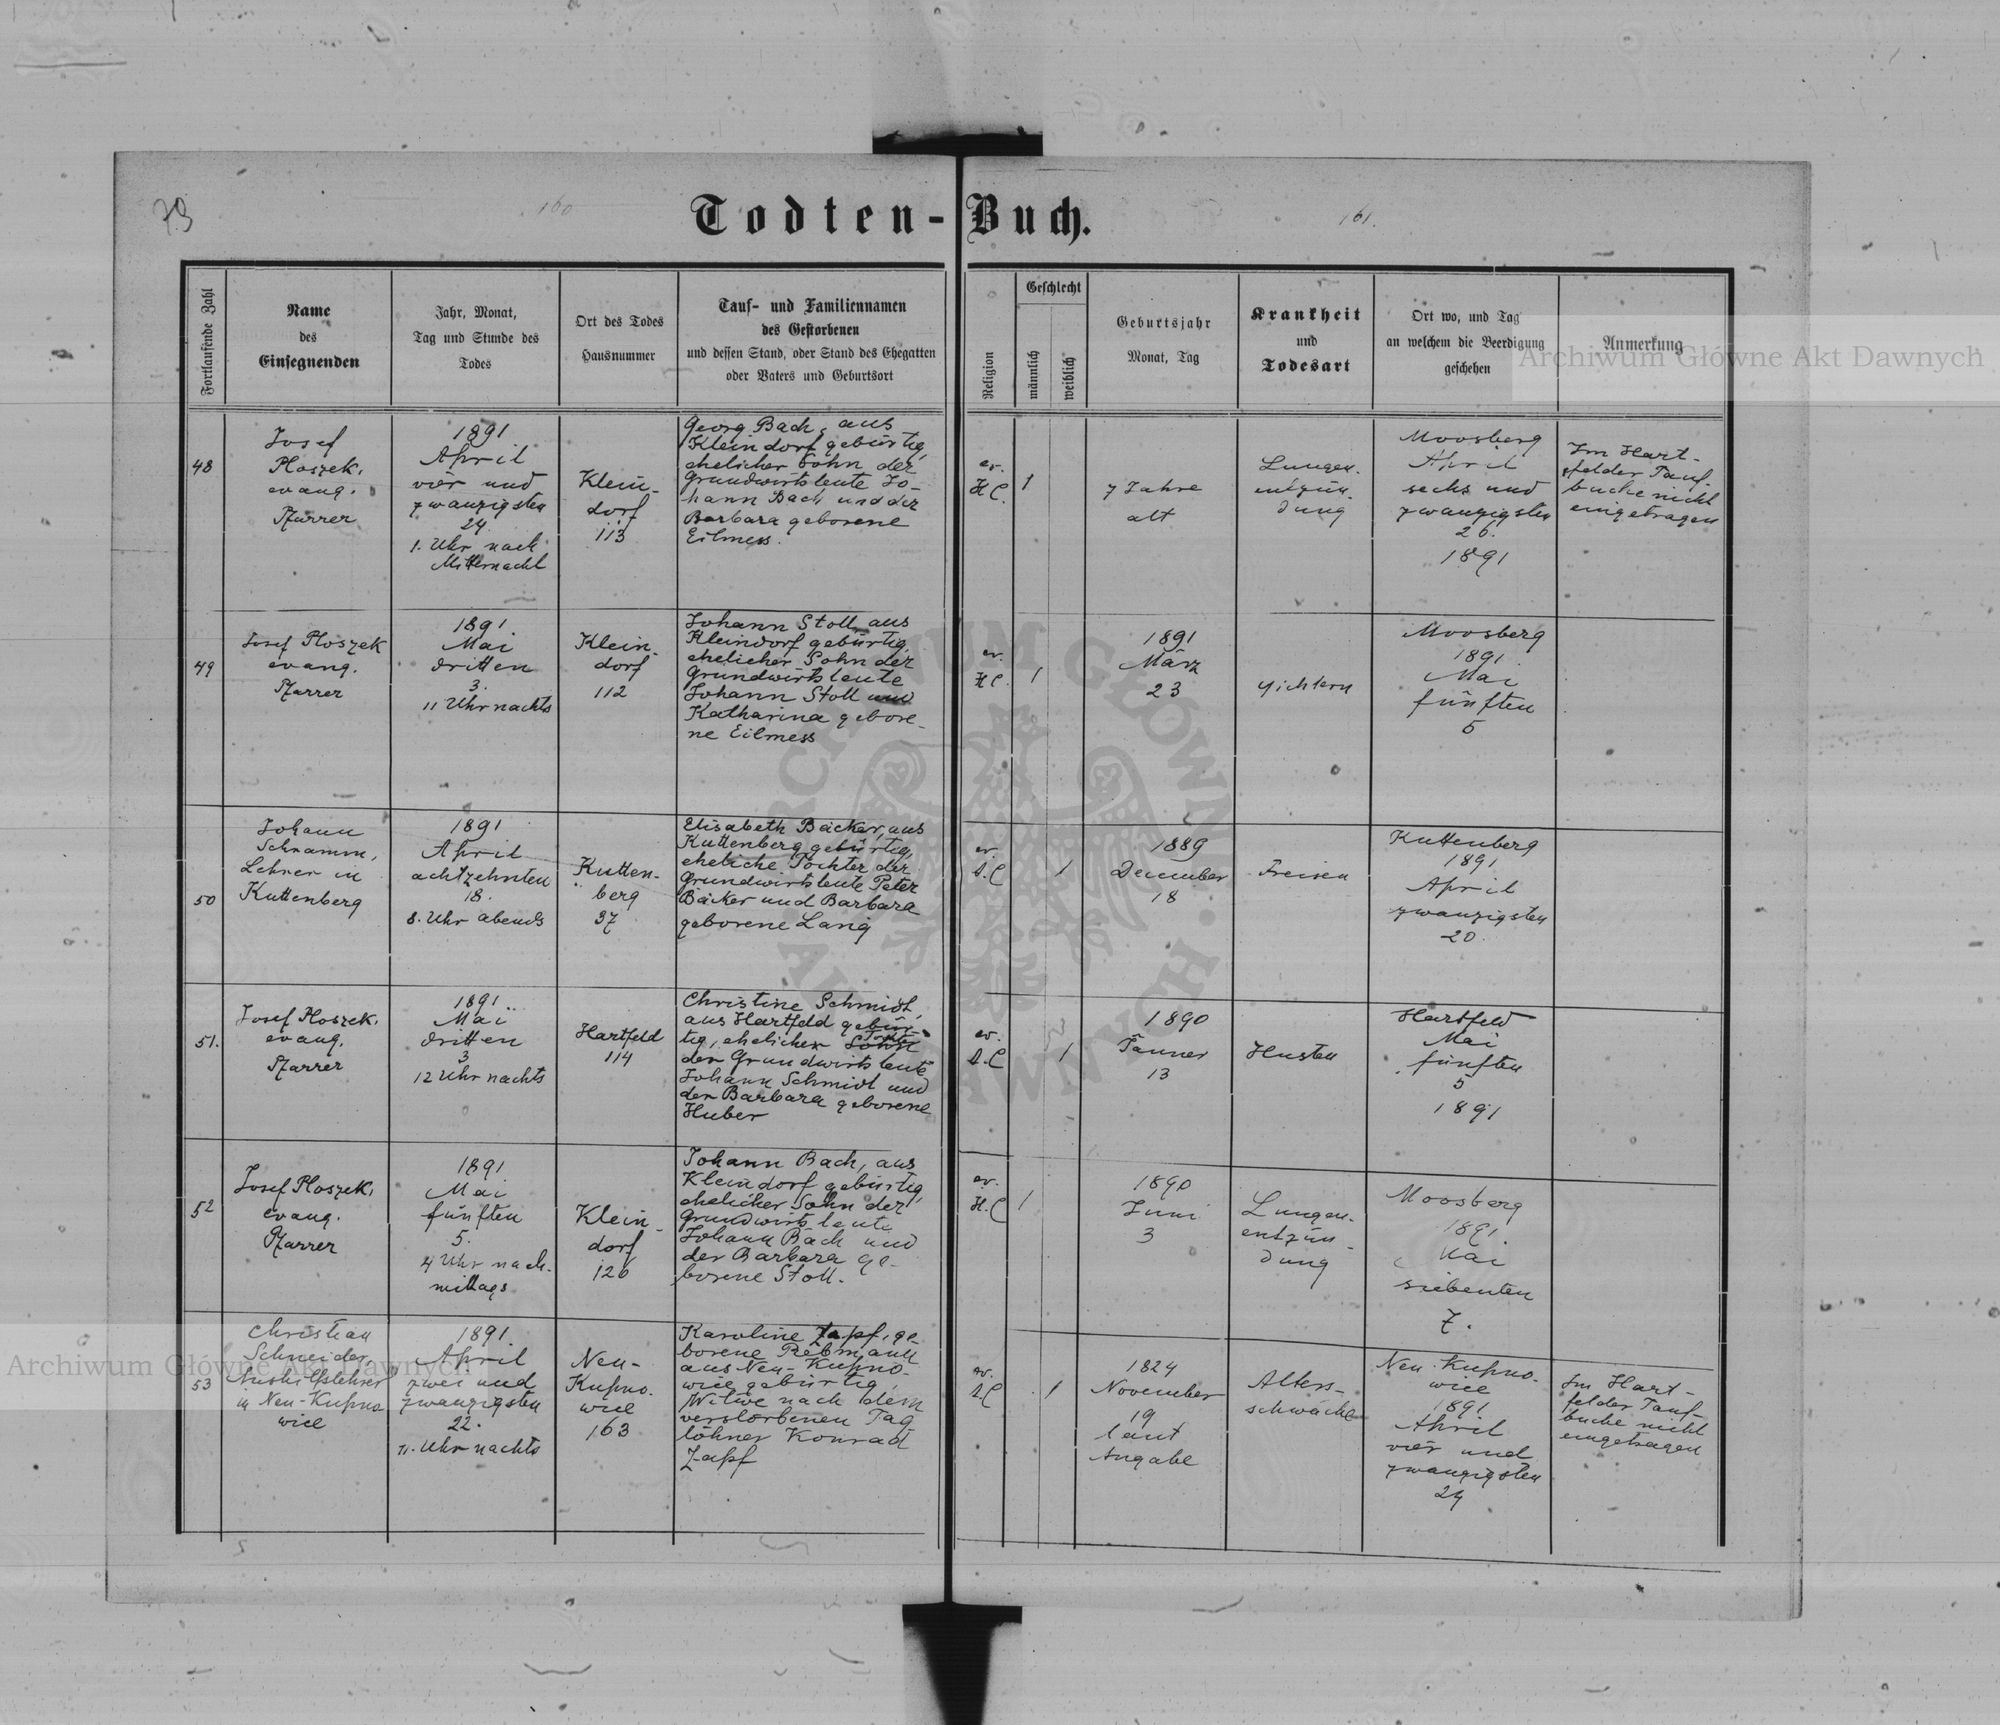 79
160
161.
Todten-Buch.
Fortlaufende Zahl
Name
des
Einsegnenden
Jahr, Monat,
Tag und Stunde des
Todes
Ort des Todes
Hausnummer
Tauf- und Familiennamen
des Gestorbenen
und dessen Stand, oder Stand des Ehegatten
oder Vaters und Geburtsort
Religion
Geschlecht
männlich
weiblich
Geburtsjahr
Monat, Tag
Krankheit
und
Todesart
Ort wo, und Tag
an welchem die Beerdigung
geschehen
Anmerkung
Archiwum Główne Akt Dawnych
48
Josef
Ploszek,
evang.
Pfarrer
1891
April
vier und
zwanzigsten
24.
1. Uhr nach
Mitternacht
Klein-
dorf
113
Georg Bach, aus
Kleindorf gebürtig,
ehelicher Sohn der
Grundwirtsleute Jo-
hann Bach und der
Barbara geborene
Eilmess.
ev.
H.C.
1
7 Jahre
alt
Lungen-
entzün-
dung
Moosberg
April
sechs und
zwanzigsten
26.
1891
Im Hart-
felder Tauf-
buche nicht
eingetragen
49
Josef Ploszek
evang.
Pfarrer
1891
Mai
dritten
3.
11 Uhr nachts
Klein-
dorf
112
Johann Stoll, aus
Kleindorf gebürtig,
ehelicher Sohn der
Grundwirtsleute
Johann Stoll und
Katharina gebore-
ne Eilmess
ev.
H.C.
1
1891
März
23
Gichtern
Moosberg
1891.
Mai
fünften
5
50
Johann
Schramm,
Lehrer in
Kuttenberg
1891
April
achtzehnten
18.
8. Uhr abends
Kutten-
berg
37
Elisabeth Bäcker, aus
Kuttenberg gebürtig,
eheliche Tochter der
Grundwirtsleute Peter
Bäcker und Barbara
geborene Lang
ev.
A.C
1
1889
December
18
Freisen
Kuttenberg
1891
April
zwanzigsten
20.
51.
Josef Ploszek,
evang.
Pfarrer
1891
Mai
dritten
3
12 Uhr nachts
Hartfeld
114
Christine Schmidt,
aus Hartfeld gebür-
tig, ehelicher Sohn
der Grundwirtsleute
Johann Schmidt und
der Barbara geborene
Huber
ev.
A.C
1
1890
Jänner
13
Husten
Hartfeld
Mai
fünften
5
1891
52
Josef Ploszek,
evang.
Pfarrer
1891
Mai
fünften
5.
4 Uhr nach-
mittags
Klein-
dorf
126
Johann Bach, aus
Kleindorf gebürtig,
ehelicher Sohn der
Grundwirtsleute
Johann Bach und
der Barbara ge-
borene Stoll.
ev.
H.C
1
1890
Juni
3
Lungen-
entzün-
dung
Moosberg
1891.
Mai
siebenten
7.
53
Christian
Schneider,
Aushilfslehrer
in Neu-Kupno-
wice
1891
April
zwei und
zwanzigsten
22.
11. Uhr nachts
Neu-
Kupno-
wice
163
Karoline Zapf, ge-
borene Rebmann
aus Neu-Kupno-
wice gebürtig,
Witwe nach dem
verstorbenen Tag
löhner Konrad
Zapf
ev.
A.C
1
1824
November
19
laut
Angabe
Alters-
schwäche
Neu-Kupno-
wice
1891
April
vier und
zwanzigsten
24
Im Hart-
felder Tauf-
buche nicht
eingetragen
Archiwum Główne Akt Dawnych